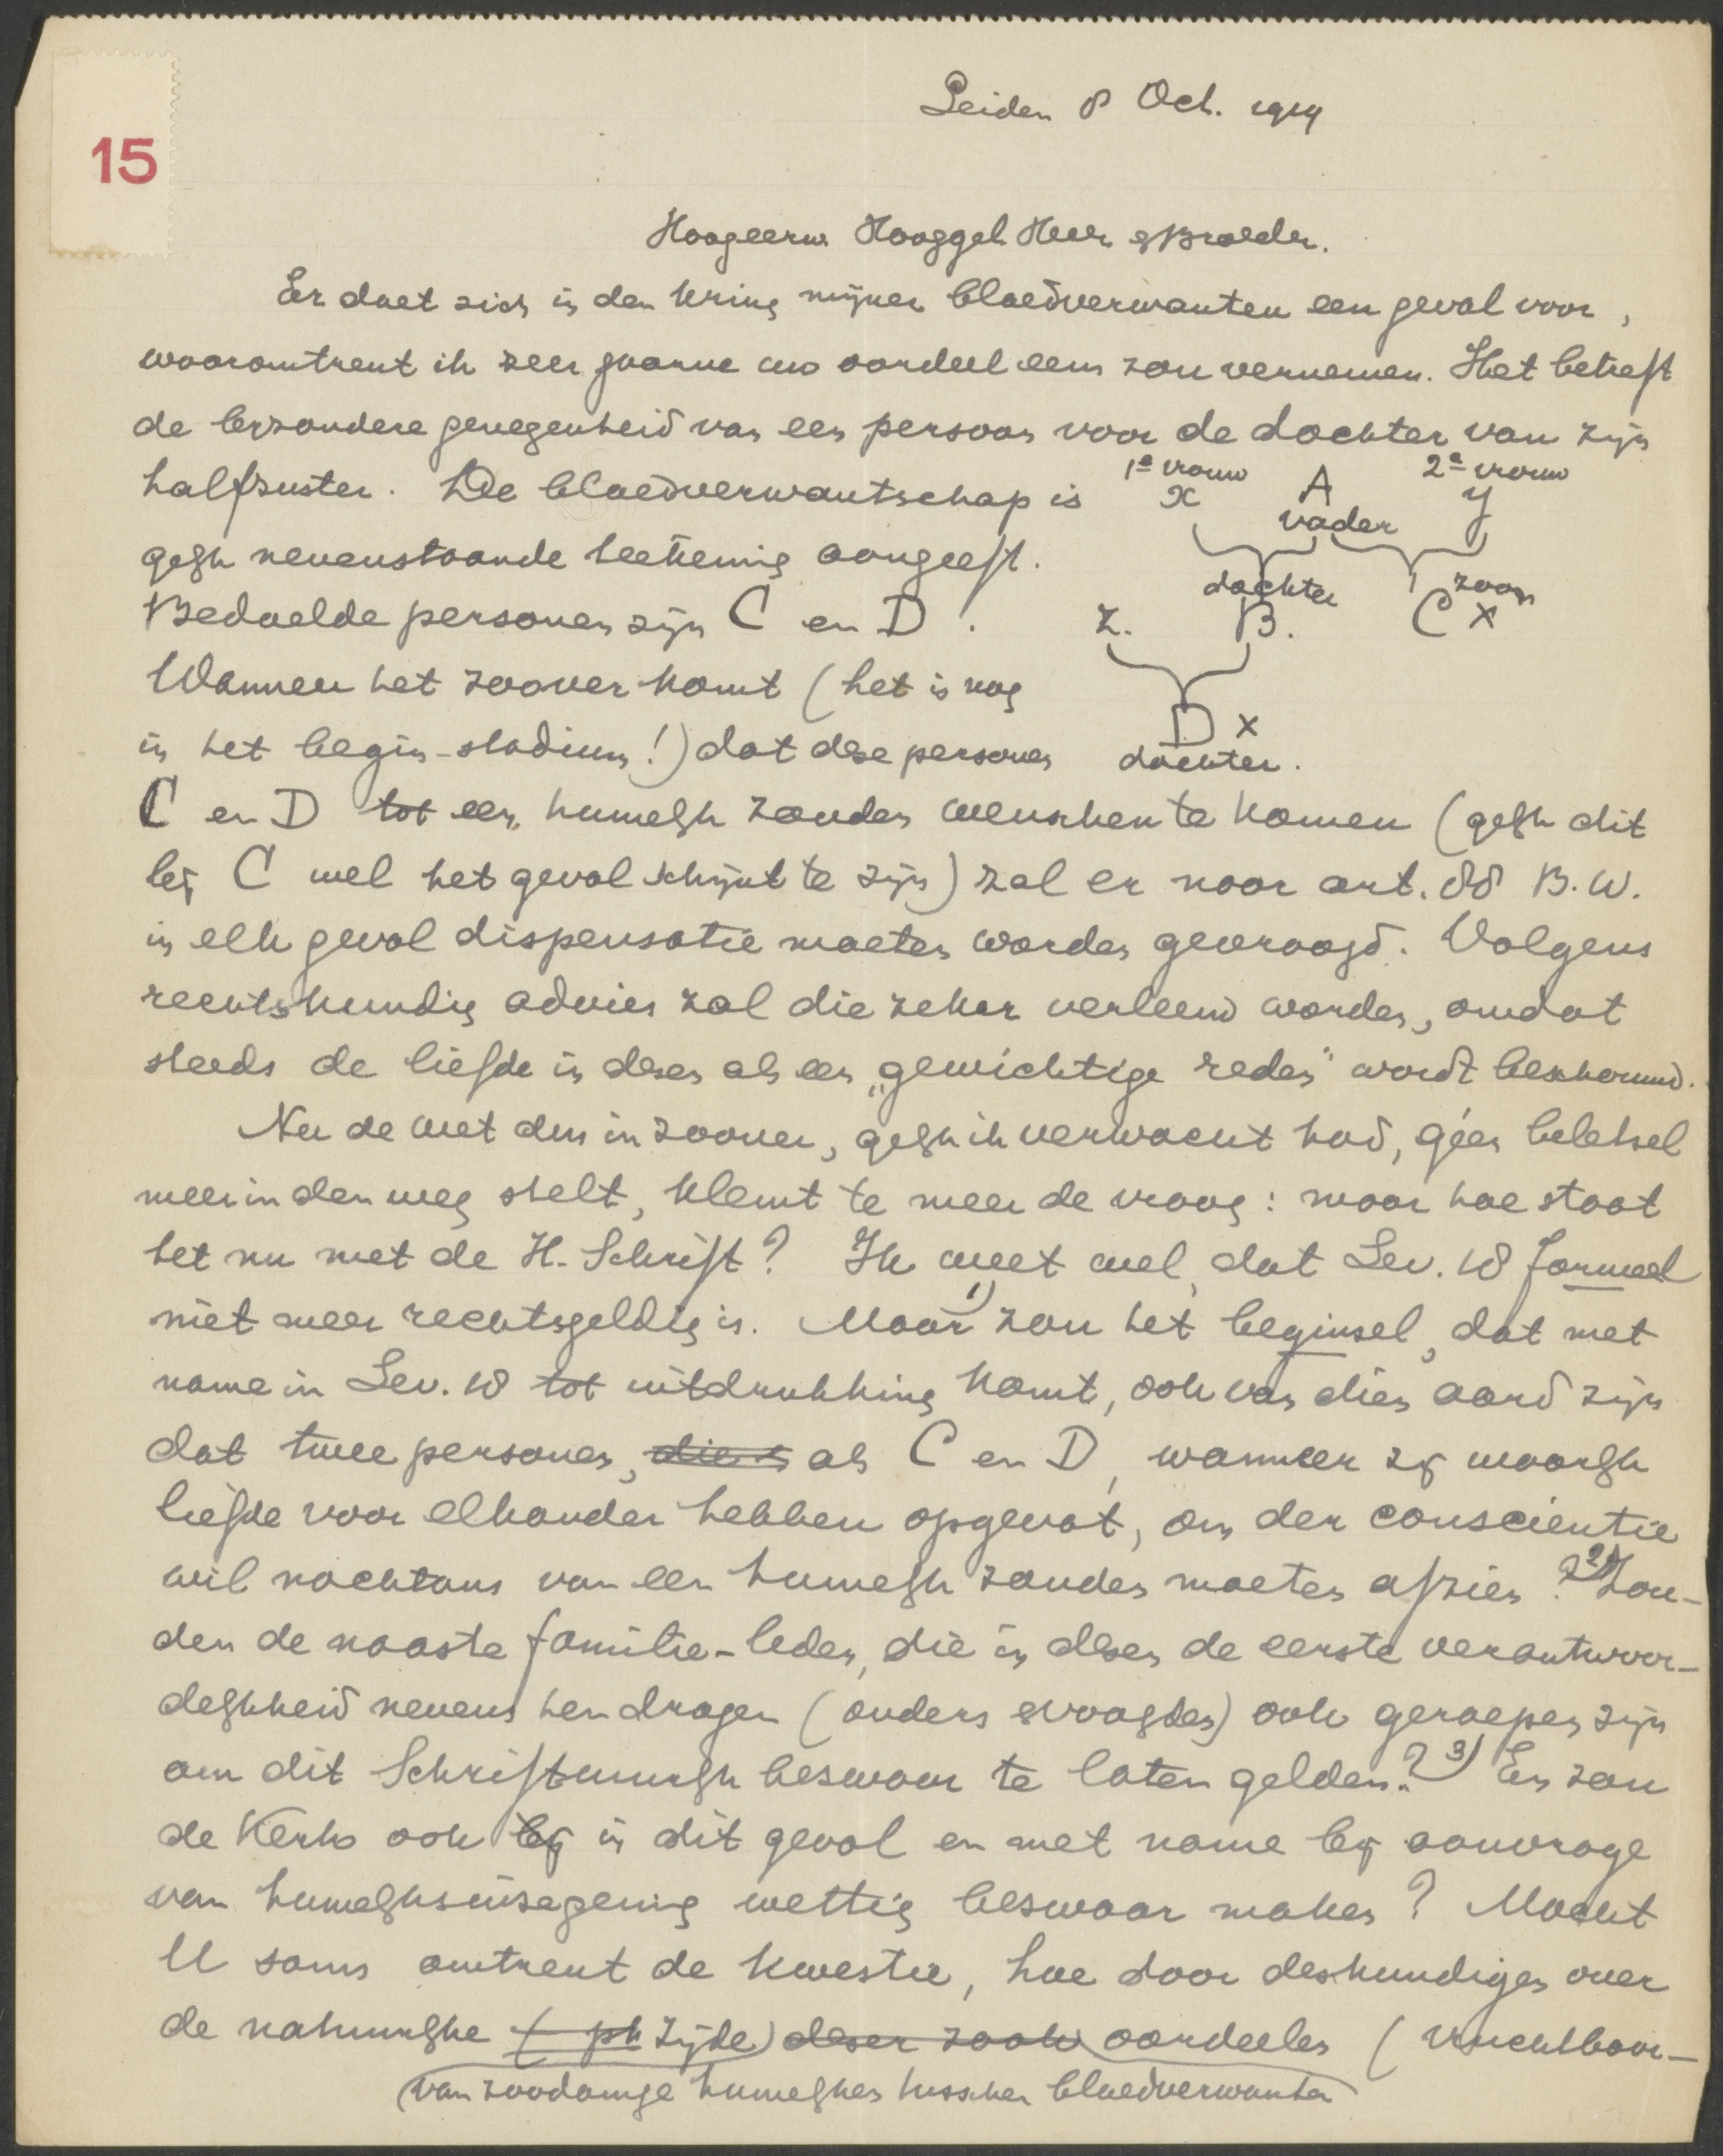 15
Leiden 8 Oct. 1919
Hoogeerw. Hooggel. Heer & Broeder.
Er doet zich in den kring mijner bloedverwanten een geval voor,
waaromtrent ik zeer gaarne uw oordeel eens zou vernemen. Het betreft
de bezondere genegenheid van een persoon voor de dochter van zijn
halfzuster. De bloedverwantschap is
1e vrouw A 2e vrouw
x vader y
gelijk nevenstaande teekening aangeeft.
dochter zoon
Bedoelde personen zijn C en D.
Z. B. C x
Wanneer het zoover komt (het is nog
D x
in het begin-stadium!) dat deze personen
dochter.
C en D tot een huwelijk zouden wenschen te komen (gelijk dit
bij C wel het geval schijnt te zijn) zal er naar art. 88 B.W.
in elk geval dispensatie moeten worden gevraagd. Volgens
rechtskundig advies zal die zeker verleend worden, omdat
steeds de liefde in dezen als een „gewichtige reden" wordt beschouwd.
Nu de wet dus in zoover, gelijk ik verwacht had, géén beletsel
meer in den weg stelt, klemt te meer de vraag: maar hoe staat
het nu met de H. Schrift? Ik weet wel, dat Lev. 18 formeel
niet meer rechtsgeldig is. 1) Maar zou het beginsel, dat met
name in Lev. 18 tot uitdrukking komt, ook van dien aard zijn
dat twee personen, die als C en D, wanneer zij waarlijk
liefde voor elkander hebben opgevat, om der conscientie
wil nochtans van een huwelijk zouden moeten afzien? 2) Zou-
den de naaste familie-leden, die in dezen de eerste verantwoor-
delijkheid nevens hen dragen (ouders & voogden) ook geroepen zijn
om dit Schriftuurlijk bezwaar te laten gelden? 3) En zou
de Kerk ook bij in dit geval en met name bij aanvrage
van huwelijksinzegening wettig bezwaar maken? Mocht
U soms omtrent de kwestie, hoe door deskundigen over
de natuurlijke (ph zijde) dezer zaak oordeelen (vruchtbaar-
van zoodanige huwelijken tusschen bloedverwanten